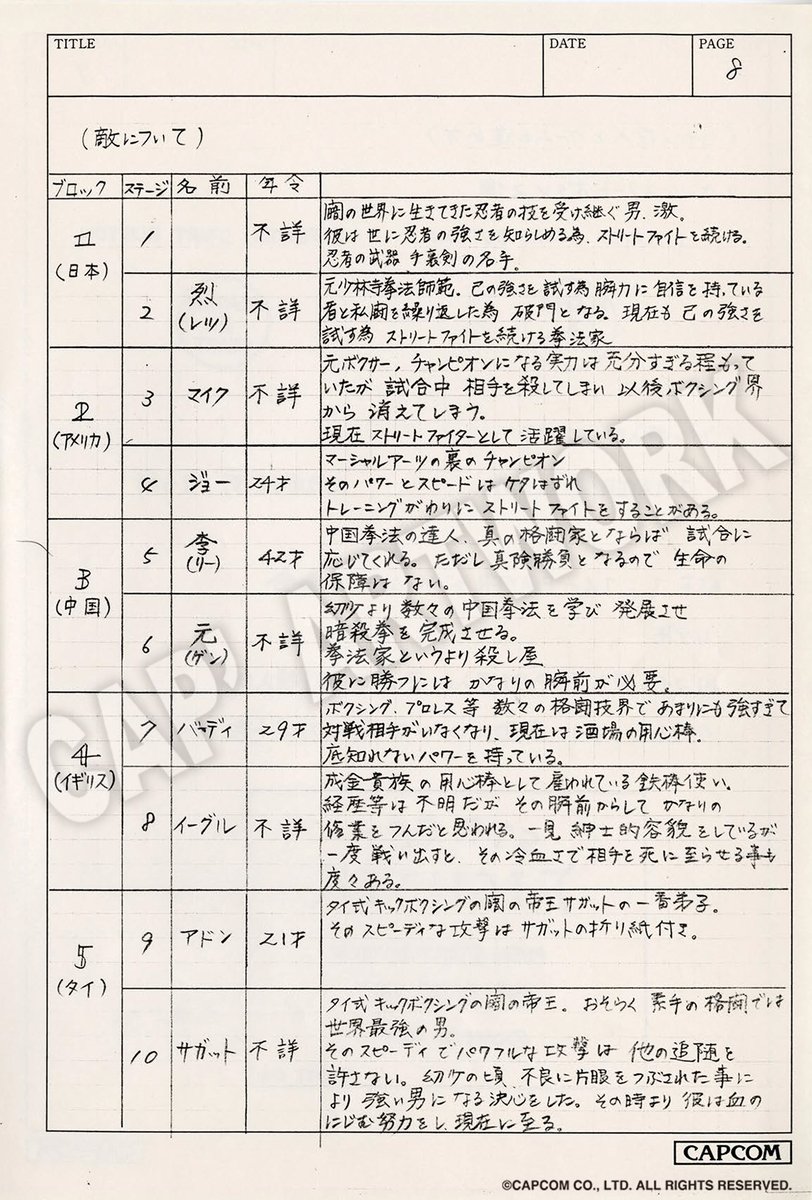 TITLE
DATE
PAGE
8
(敵について)
ブロック ステージ 名前 年令
1
(日本)
1 不詳
闇の世界に生きてきた忍者の技を受け継ぐ男、激。
彼は世に忍者の強さを知らしめる為、ストリートファイトを続ける。
忍者の武器 手裏剣の名手。
2 烈
(レツ)
不詳
元少林寺拳法師範。己の強さを試す為 腕力に自信を持っている
者と私闘を繰り返した為 破門となる。現在も 己の強さを
試す為 ストリートファイトを続ける拳法家
2
(アメリカ)
3 マイク 不詳
元ボクサー, チャンピオンになる実力は充分すぎる程もって
いたが 試合中 相手を殺してしまい 以後ボクシング界
から 消えてしまう。
現在 ストリートファイターとして 活躍している。
4 ジョー 24才
マーシャルアーツの裏のチャンピオン
そのパワーとスピードは ケタはずれ
トレーニングがわりに ストリートファイトをすることがある。
3
(中国)
5 李
(リー)
42才
中国拳法の達人、真の格闘家とならば 試合に
応じてくれる。ただし真険勝負となるので 生命の
保障は ない。
6 元
(ゲン)
不詳
幼少より 数々の中国拳法を学び 発展させ
暗殺拳を 完成させる。
拳法家というより殺し屋
彼に勝つには かなりの腕前が必要。
4
(イギリス)
7 バーディ 29才
ボクシング、プロレス等 数々の格闘技界であまりにも強すぎて
対戦相手がいなくなり、現在は 酒場の用心棒。
底知れないパワーを持っている。
8 イーグル 不詳
成金貴族の用心棒として雇われている鉄棒使い。
経歴等は 不明だが その腕前からして かなりの
修業をつんだと思われる。一見 紳士的容貌をしているが
一度 戦い出すと、その冷血さで相手を死に至らせる事も
度々ある。
5
(タイ)
9 アドン 21才
タイ式キックボクシングの闇の帝王サガットの一番弟子。
そのスピーディな攻撃は サガットの折り紙付き。
10 サガット 不詳
タイ式キックボクシングの闇の帝王。おそらく 素手の格闘では
世界最強の男。
そのスピーディでパワフルな攻撃は 他の追随を
許さない。幼少の頃 不良に片眼をつぶされた事に
より 強い男になる決心をした。その時より 彼は血の
にじむ努力をし、現在に至る。
CAP' ARTWORK
CAPCOM
©CAPCOM CO., LTD. ALL RIGHTS RESERVED.